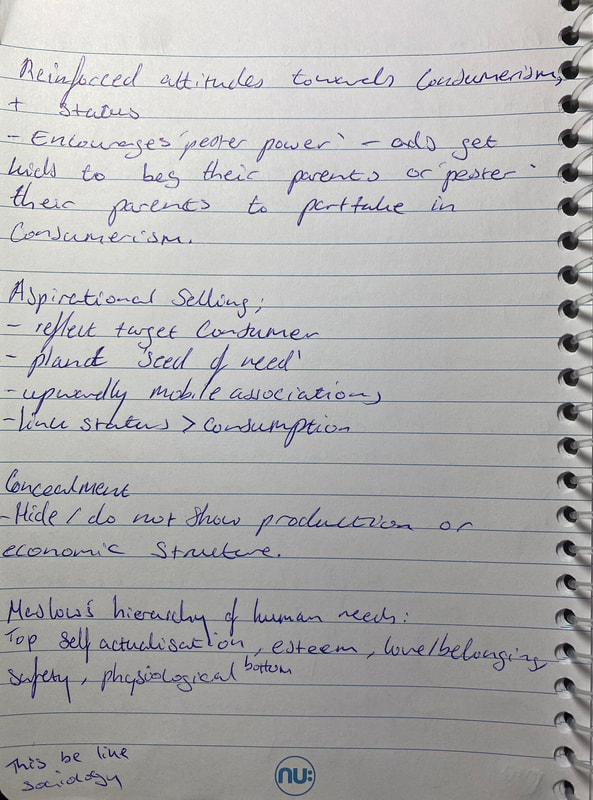 Reinforced attitudes towards Consumerism,
+ Status
- Encourages 'pester power' - ads get
kids to beg their parents or 'pester'
their parents to parttake in
Consumerism.
Aspirational Selling;
- reflect target Consumer
- plant 'seed of need'
- upwardly mobile associations
- link status > consumption
Concealment
- Hide / do not show production or
economic structure.
Maslow's hierarchy of human needs:
Top Self actualisation, esteem, love/belonging,
safety, physiological bottom
This be like
sociology
nu: